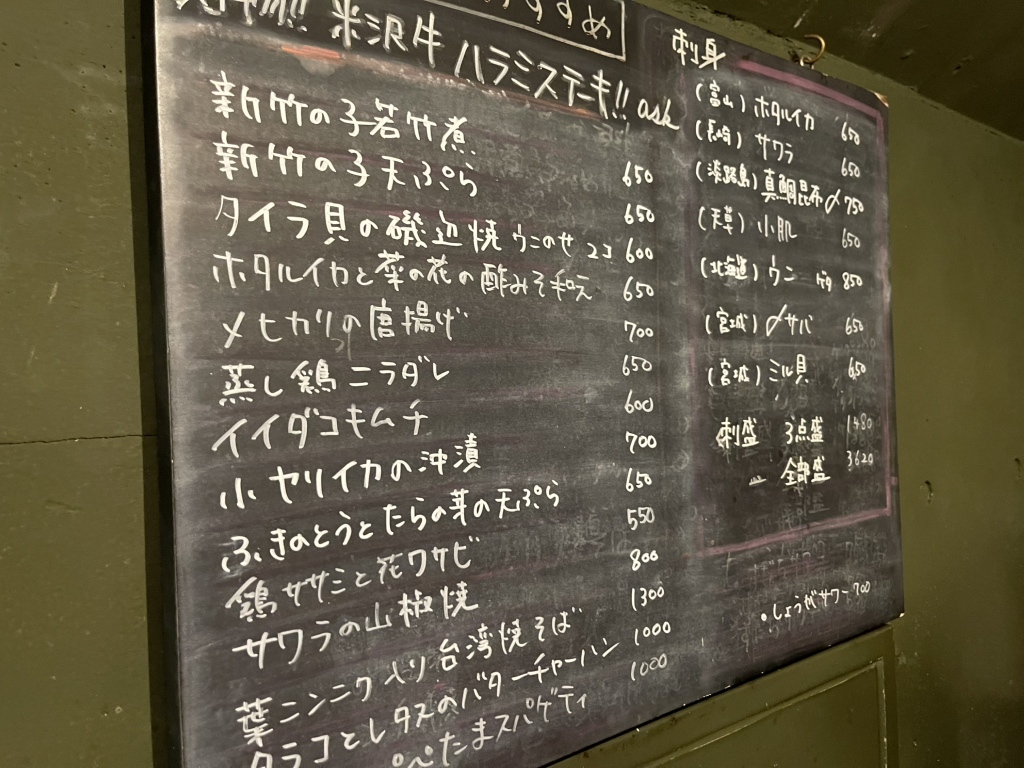 すすめ
!! 米沢牛 ハラミステーキ!! ask
新竹の子若竹煮 650
新竹の子天ぷら 650
タイラ貝の磯辺焼 ウニのせ 2コ 600
ホタルイカと菜の花の酢みそ和え 650
メヒカリの唐揚げ 700
蒸し鶏ニラダレ 650
イイダコキムチ 600
小ヤリイカの沖漬 700
ふきのとうとたらの芽の天ぷら 650
鶏ササミと花ワサビ 550
サワラの山椒焼 800
葉ニンニク入り台湾焼そば 1300
タラコとレタスのバターチャーハン 1000
ぺぺたまスパゲティ 1000
刺身
(富山) ホタルイカ 650
(長崎) サワラ 650
(淡路島) 真鯛昆布〆 750
(天草) 小肌 650
(北海道) ウニ 850
(宮城) 〆サバ 650
(宮城) ミル貝 650
刺盛 3点盛 1480
〃 全部盛 3620
•しょうがサワー 700